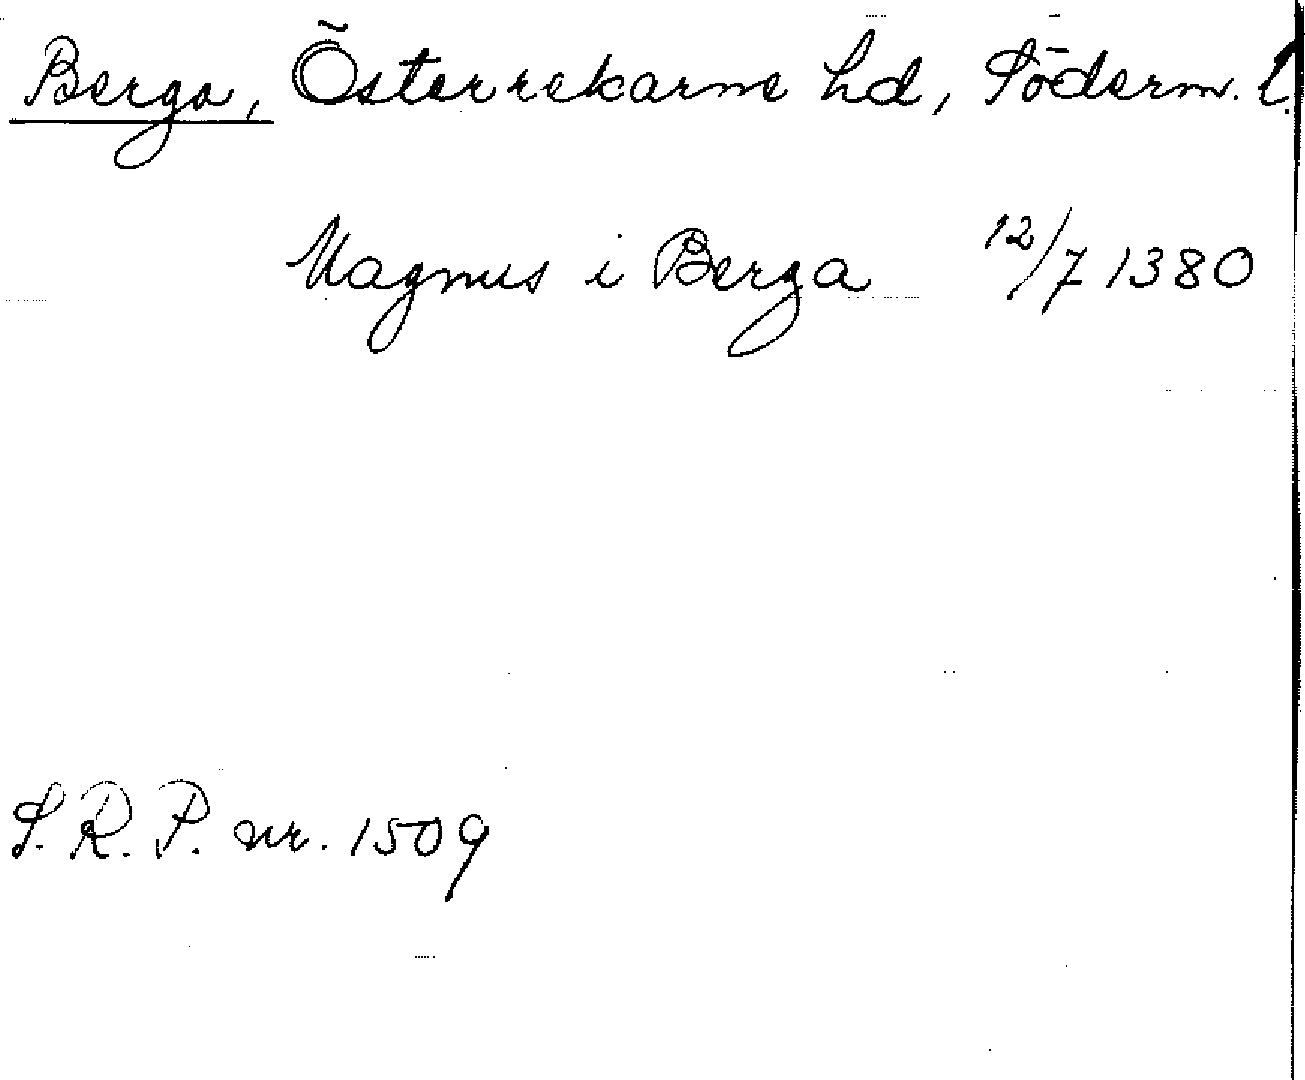 Berga, Österrekarne hd, Söderm. l.
Magnus i Berga 12/7 1380
S.R.P. nr. 1509